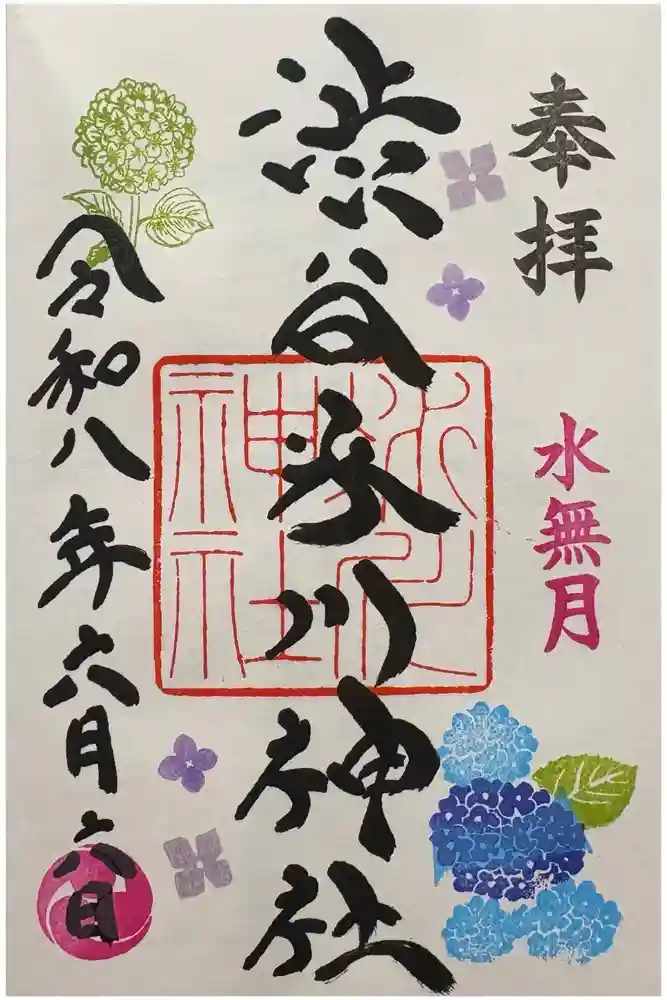 奉拝
水無月
渋谷氷川神社
氷川
神社
令和八年六月六日